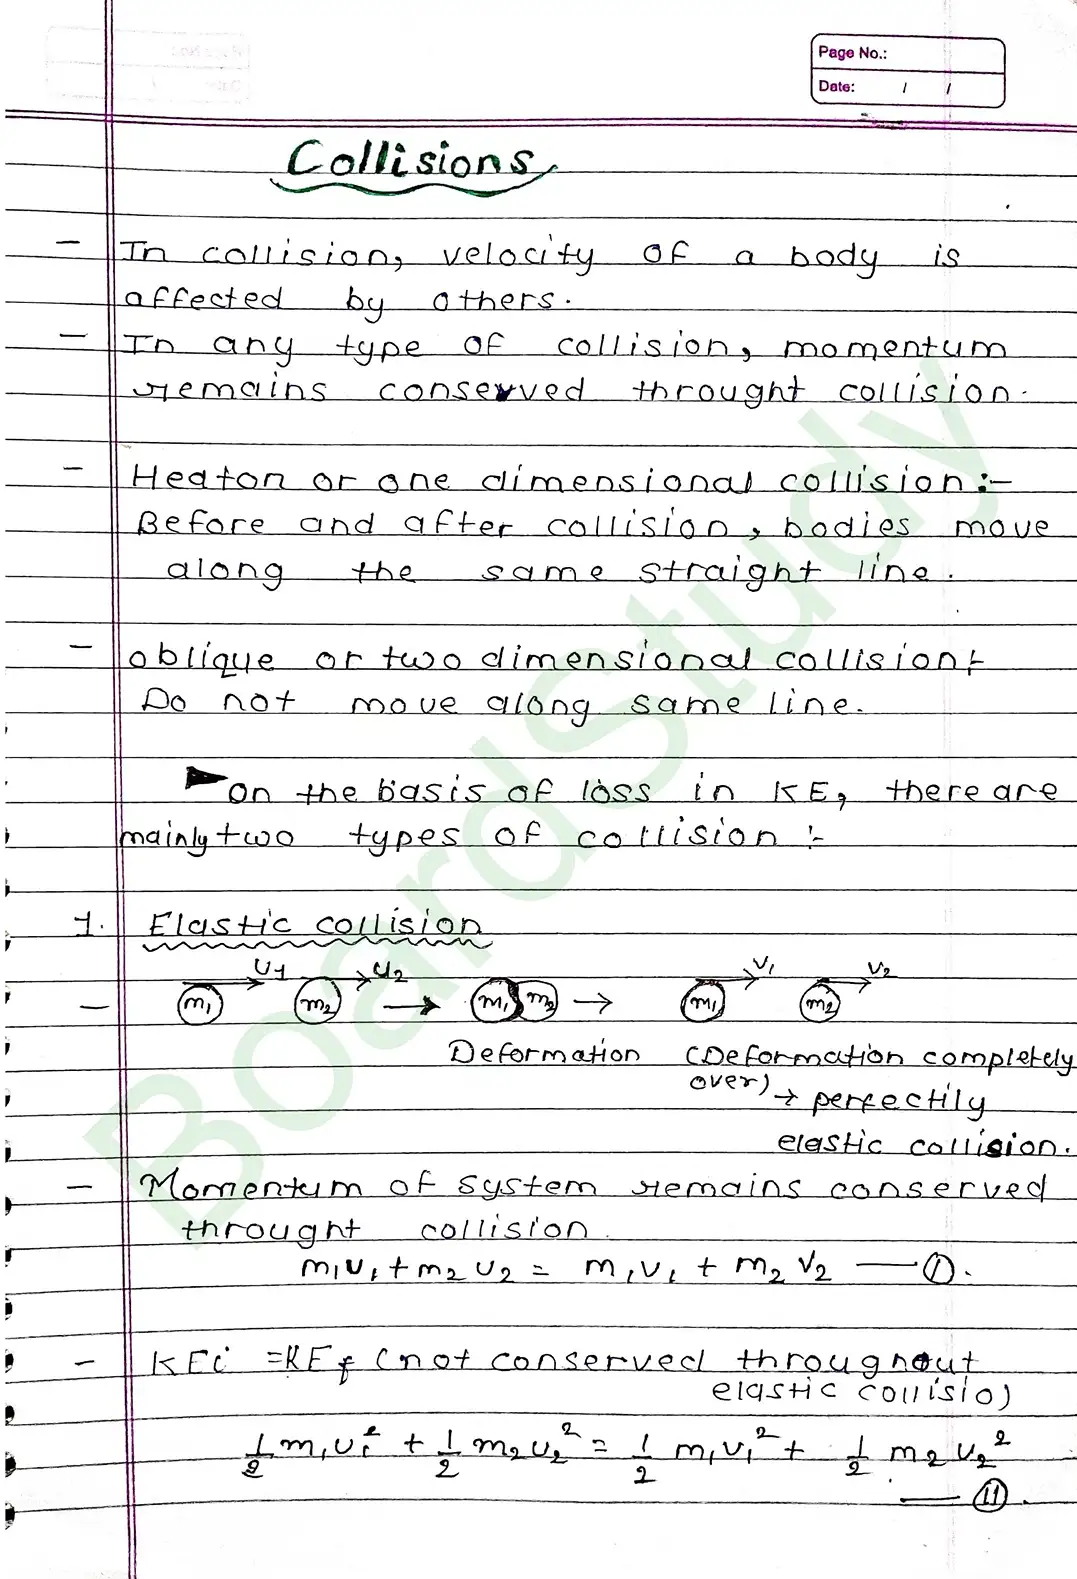 Page No.:
Date: / /
Collisions
- In collision, velocity of a body is
affected by others.
- In any type of collision, momentum
remains conserved throught collision.
- Heaton or one dimensional collision :-
Before and after collision, bodies move
along the same straight line.
- oblique or two dimensional collision :-
Do not move along same line.
on the basis of loss in KE, there are
mainly two types of collision :-
1. Elastic collision
u1 u2 v1 v2
- m1 m2 → m1 m2 → m1 m2
Deformation (Deformation completely
over) → perfectily
elastic collision.
- Momentum of system remains conserved
throught collision.
m1u1 + m2u2 = m1v1 + m2v2 — (1).
- KEi = KEf (not conserved throughout
elastic collisio)
1/2 m1u1² + 1/2 m2u2² = 1/2 m1v1² + 1/2 m2v2²
— (11).
BoardStudy